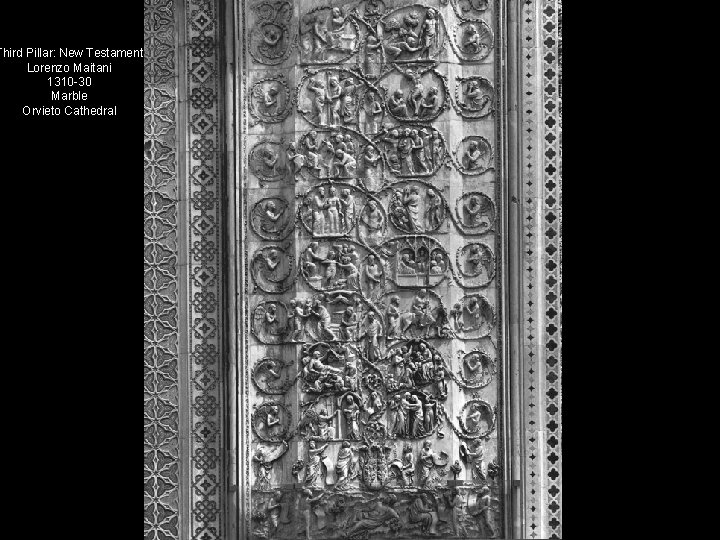 Third Pillar: New Testament
Lorenzo Maitani
1310-30
Marble
Orvieto Cathedral